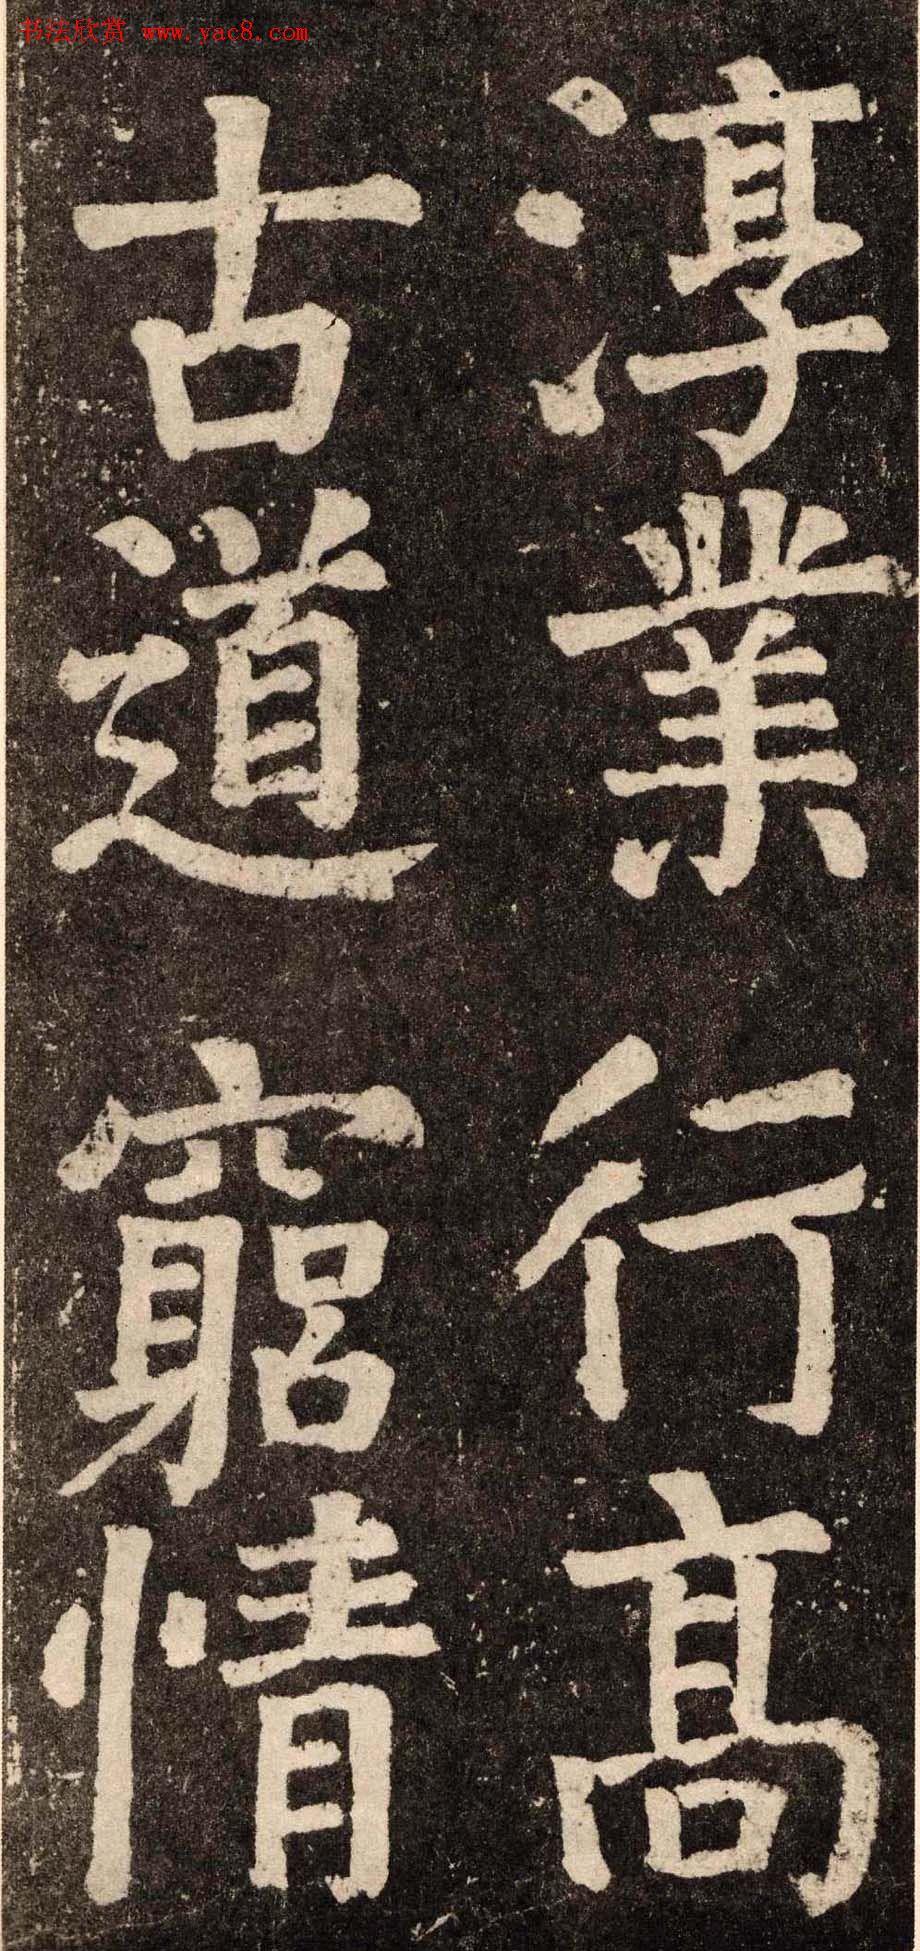 书法欣赏 www.yac8.com
淳業行高
古道窮情